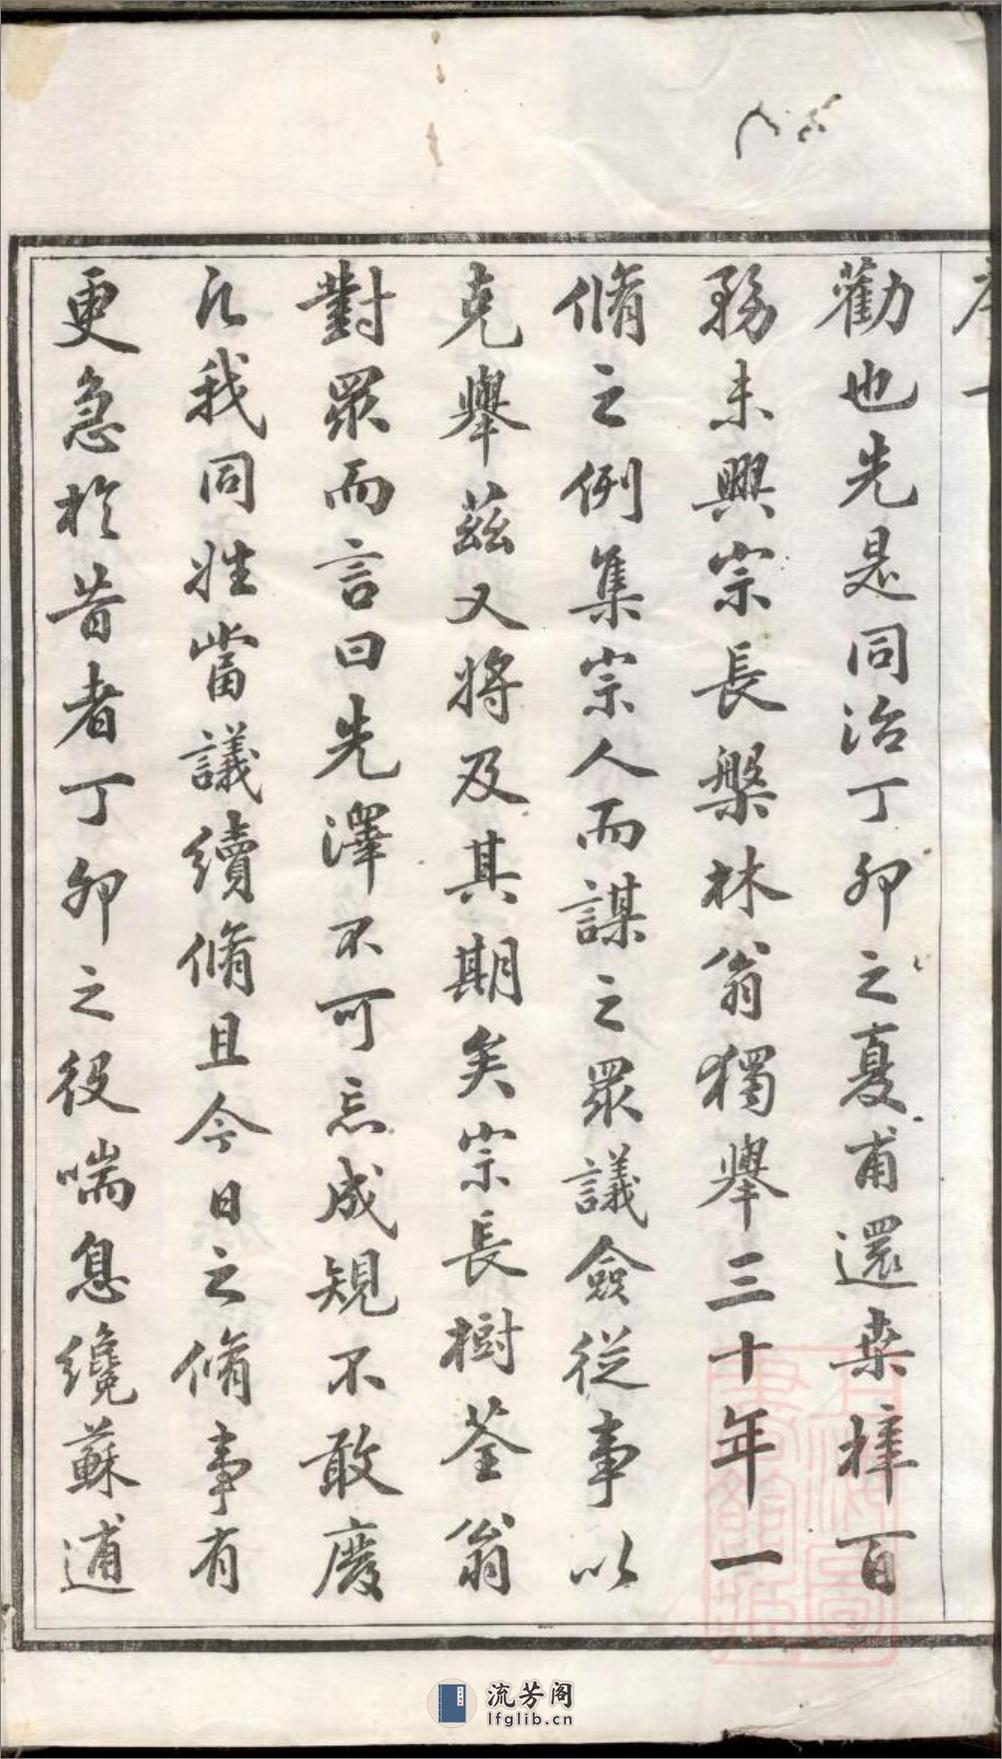 勸也先是同治丁卯之憂甫還桑梓百
務未興宗長槃林翁獨舉三十年一
脩之例集宗人而謀之眾議僉從事以
克舉茲又將及其期矣宗長樹荃翁
對眾而言曰先澤不可忘成規不敢廢
凡我同姓當議續脩且今日之脩事有
更急於昔者丁卯之役喘息纔蘇逋
流芳阁
lfglib.cn